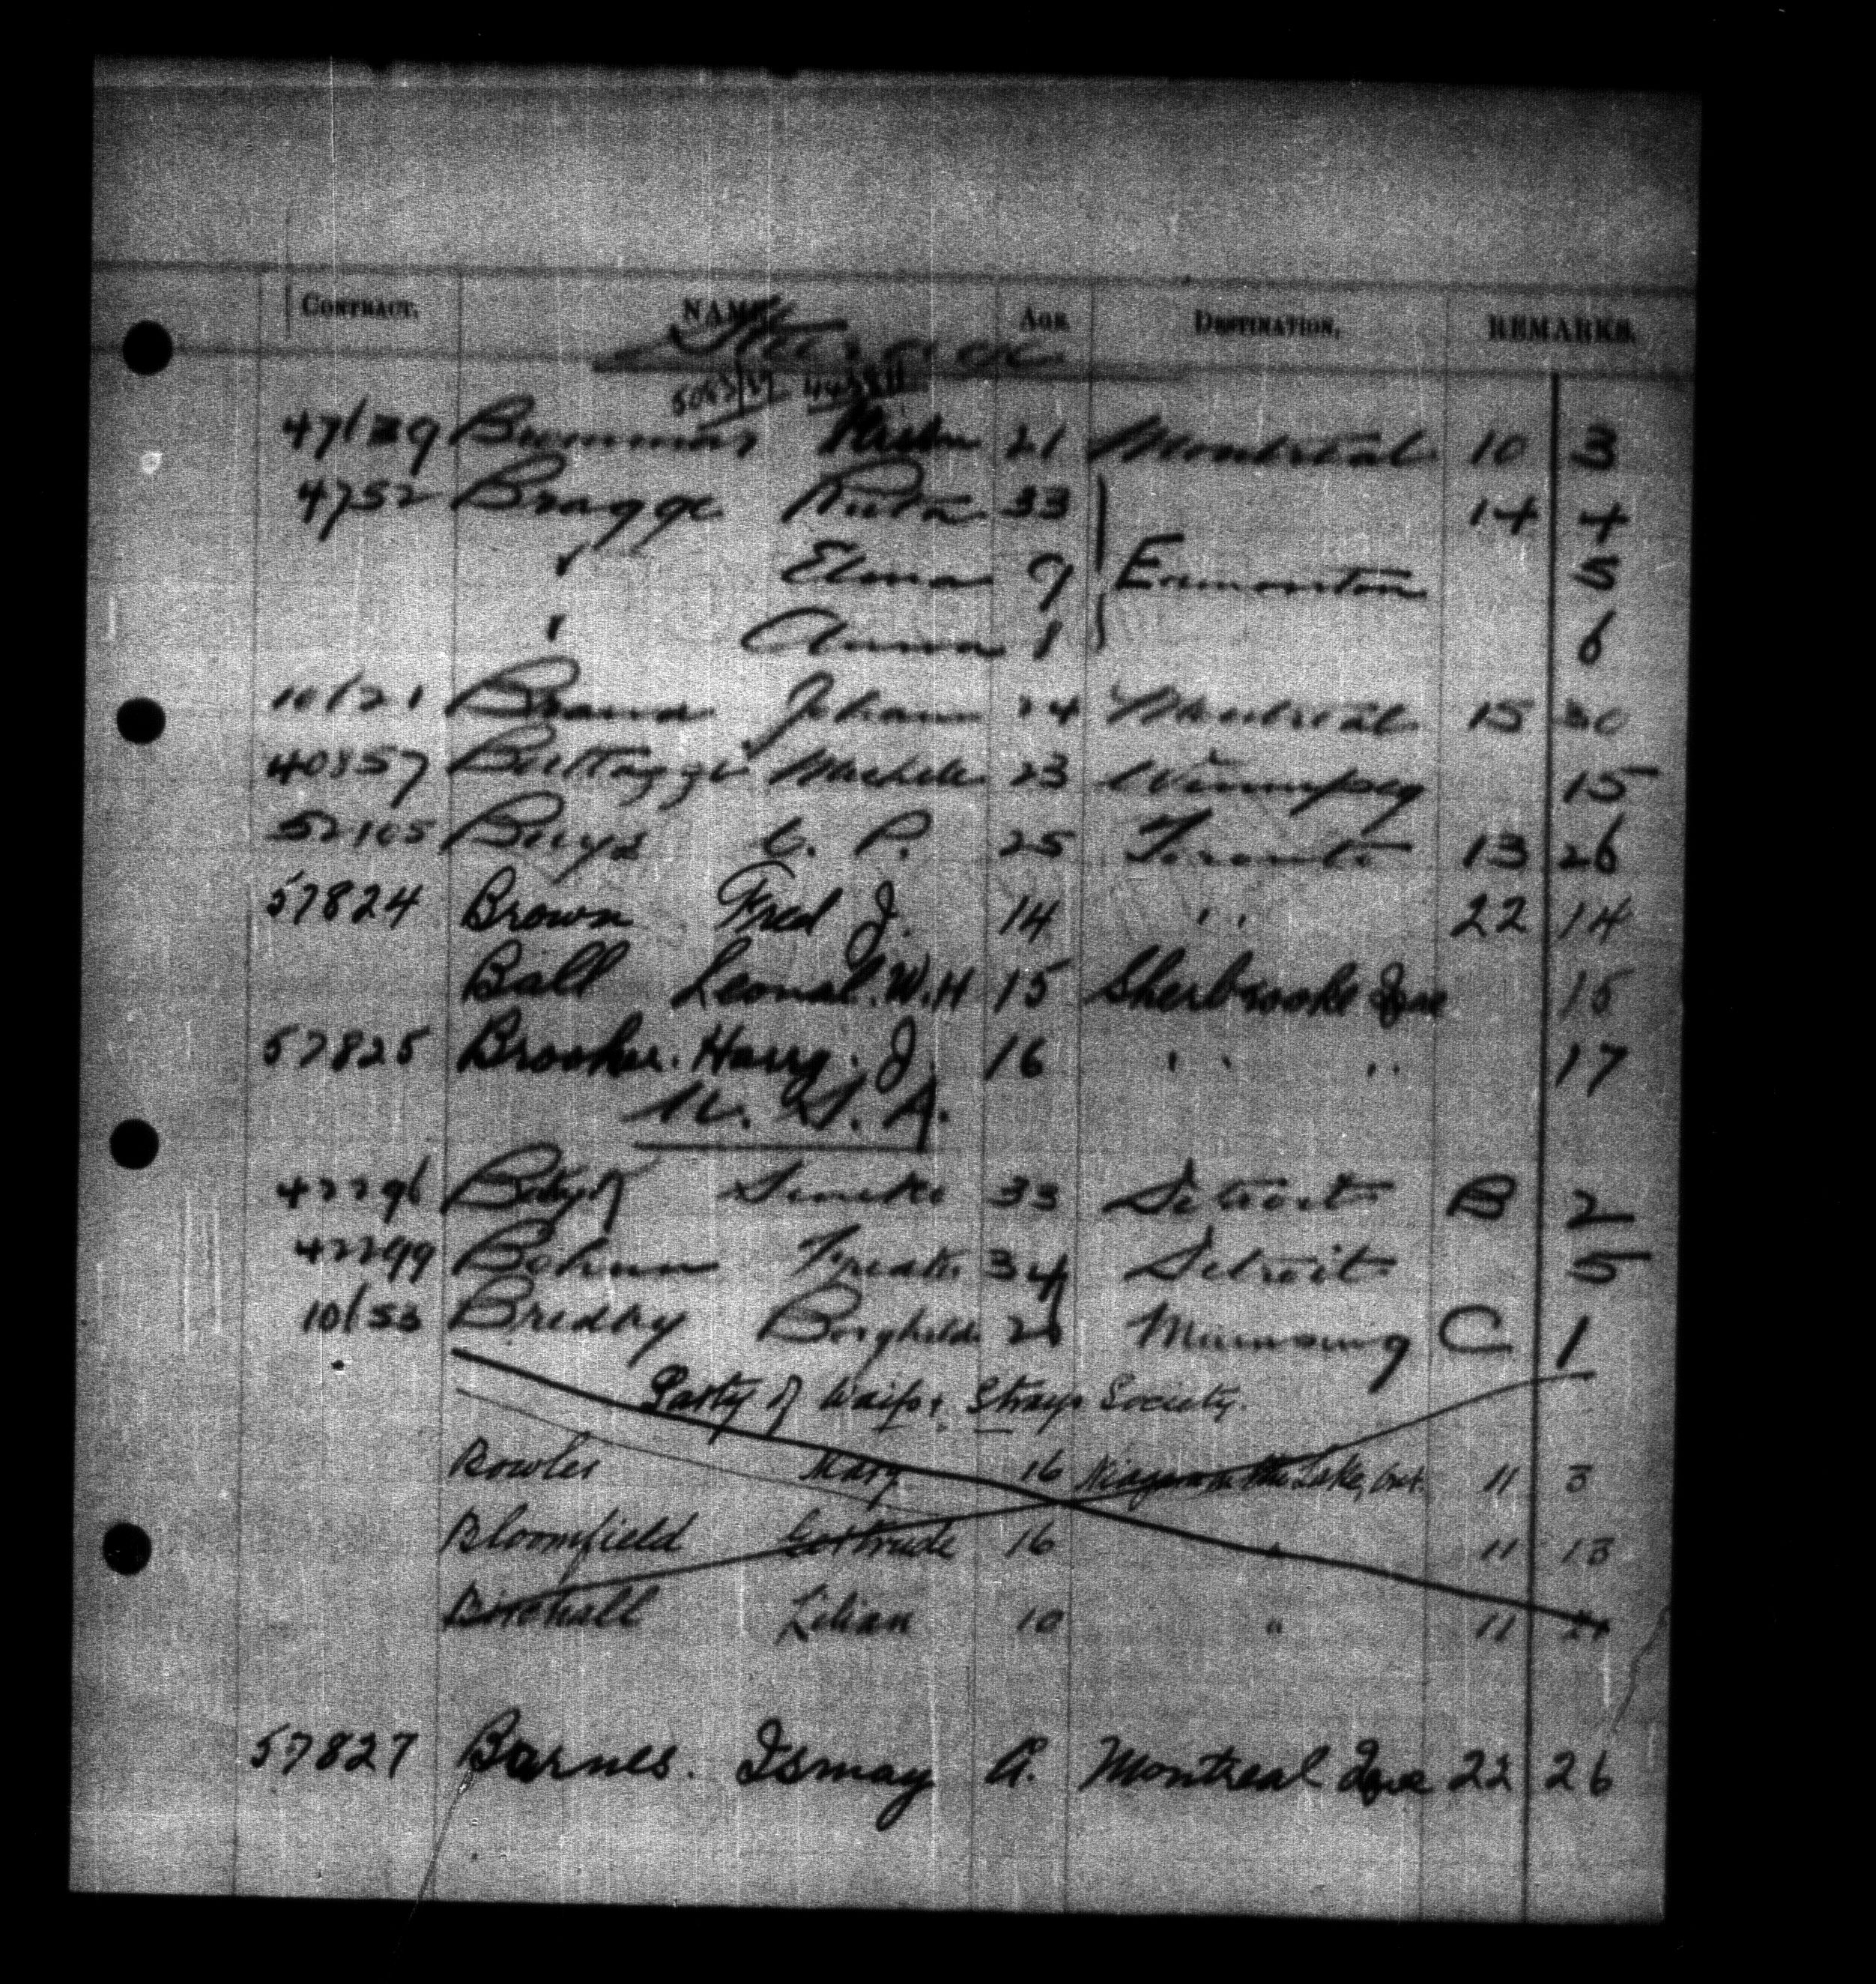 CONTRACT. NAME AGE. DESTINATION. REMARKS.
47/39 21 Montreal 10 3
4752 Bragge 33 14 4
Elma 9 Edmonton 5
Anna 8 6
10/21 Johann 24 Montreal 15 30
40857 Michele 23 Winnipeg 15
52105 Buys C. P. 25 Toronto 13 26
57824 Brown Fred J. 14 " 22 14
Ball Leonal. W. H 15 Sherbrooke Que 15
57825 Brooker. Harry. J. 16 " " 17
U. S. A.
42296 33 Detroit B 2
42299 Bohun 34 Detroit 5
10/53 Bredby Borghild 28 Munising C 1
Party of Waifs & Strays Society.
Bowler Mary 16 Niagara on the Lake, Ont. 11 3
Bloomfield Gertrude 16 " 11 13
Birchall Lilian 10 " 11
57827 Barnes. Ismay A. Montreal Que 22 26